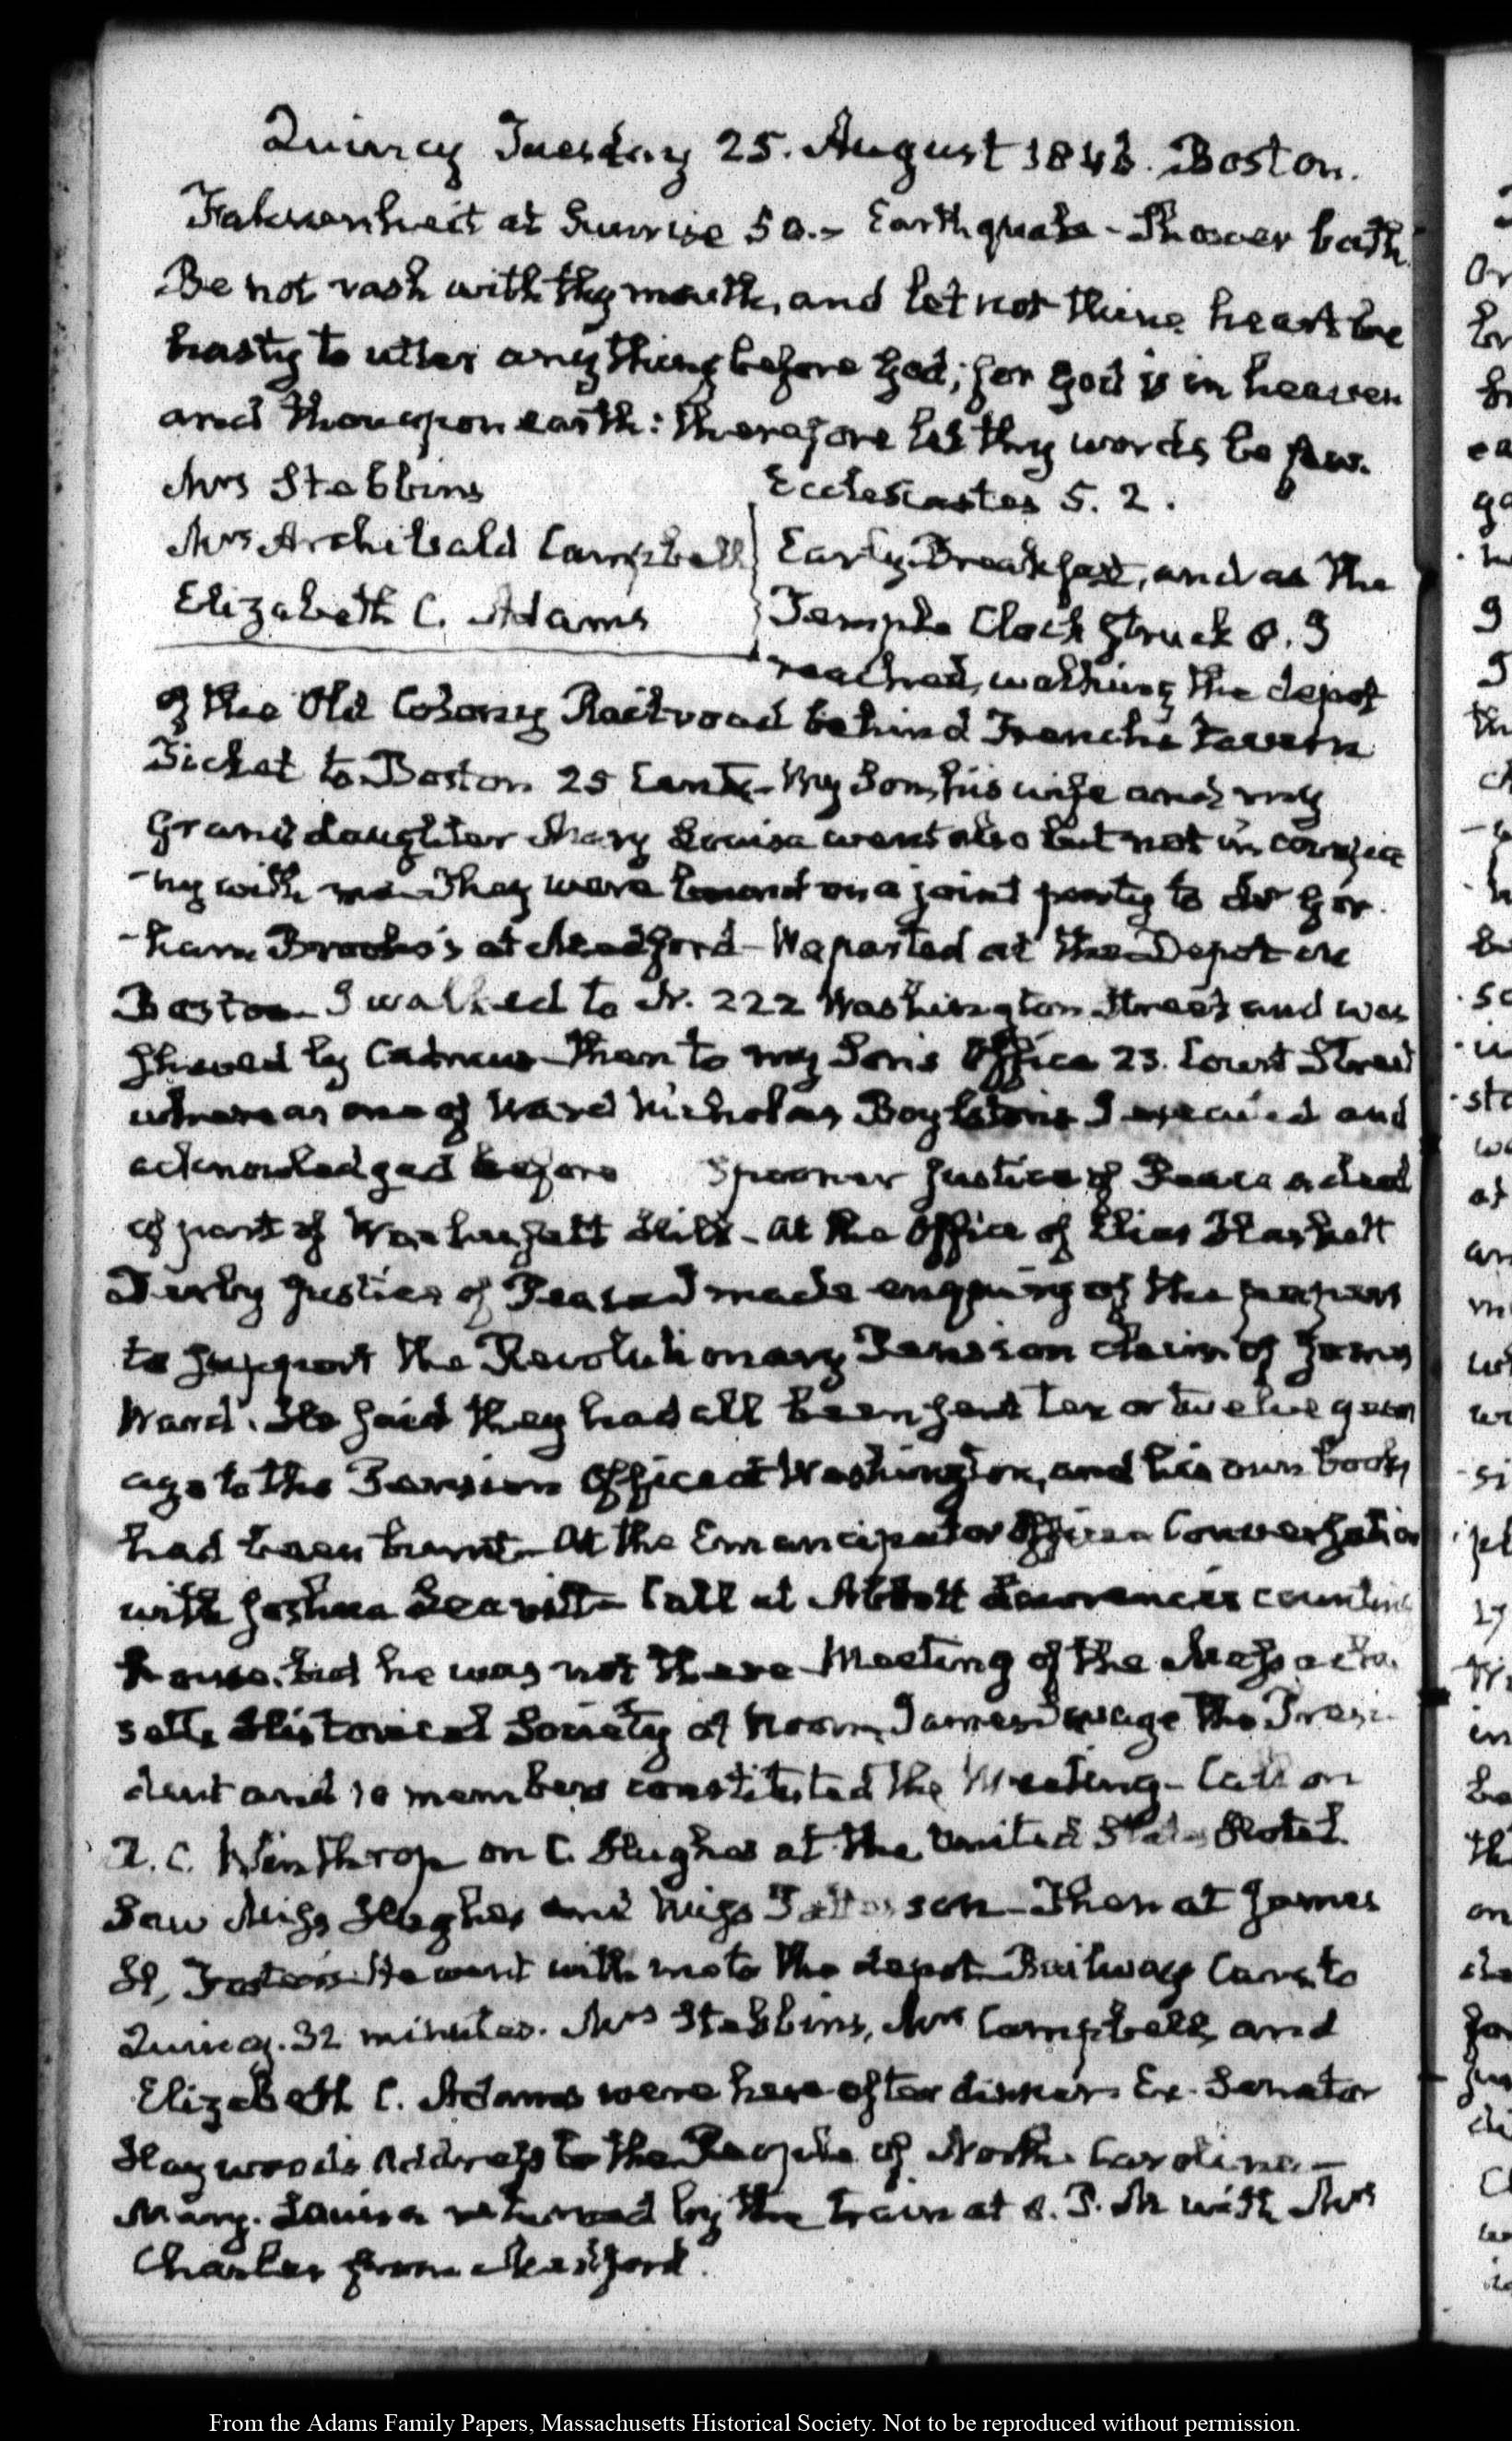 Quincy Tuesday 25. August 1846. Boston.
Fahrenheit at Sunrise 50. Earthquake - Shower bath
Be not rash with thy mouth, and let not thine heart be
hasty to utter any thing before God; for God is in heaven
and thou upon earth: therefore let thy words be few.
Mrs Stebbins
Ecclesiastes 5. 2.
Mrs Archibald Campbell
Elizabeth C. Adams
Early Breakfast, and as the
Temple Clock struck 8. I
reached, walking the depot
of the Old Colony Railroad behind French's tavern
Ticket to Boston 25 Cents - My Son, his wife and my
Grand daughter Mary Louisa went also but not in compa
-ny with me They were bound on a joint party to Gor
-ham Brooks's at Medford - We parted at the Depot in
Boston I walked to N. 222 Washington Street and was
shaved by Cadmus - Then to my Son's Office 23. Court Street
where as one of Ward Nicholas Boylston's I executed and
acknowledged before Spooner Justice of Peace a deed
of part of Hill - At the Office of Elias Haskett
Derby Justice of Peace I made enquiry of the papers
to support the Revolutionary Pension claim of James
Ward. He said they had all been sent ten or twelve years
ago to the Pension Office at Washington, and his own books
had been burnt - At the Emancipator Office a Conversation
with Joshua Leavitt - Call at Abbott Lawrence's counting
house. but he was not there - Meeting of the Massachu
setts Historical Society at Noon, James Savage the Presi
dent and 10 members constituted the Meeting - Call on
T. C. Winthrop on C. Hughes at the United States Hotel.
Saw Miss Hughes and Miss Patterson - Then at James
H. Foster's He went with me to the depot - Railway Cars to
Quincy. 32 minutes. Mrs Stebbins, Mrs Campbell, and
Elizabeth C. Adams were here after dinner. Ex-Senator
Haywood's Address to the People of North Carolina -
Mary. Louisa returned by the train at 8. P. M with Mrs
Charles from Medford.
From the Adams Family Papers, Massachusetts Historical Society. Not to be reproduced without permission.